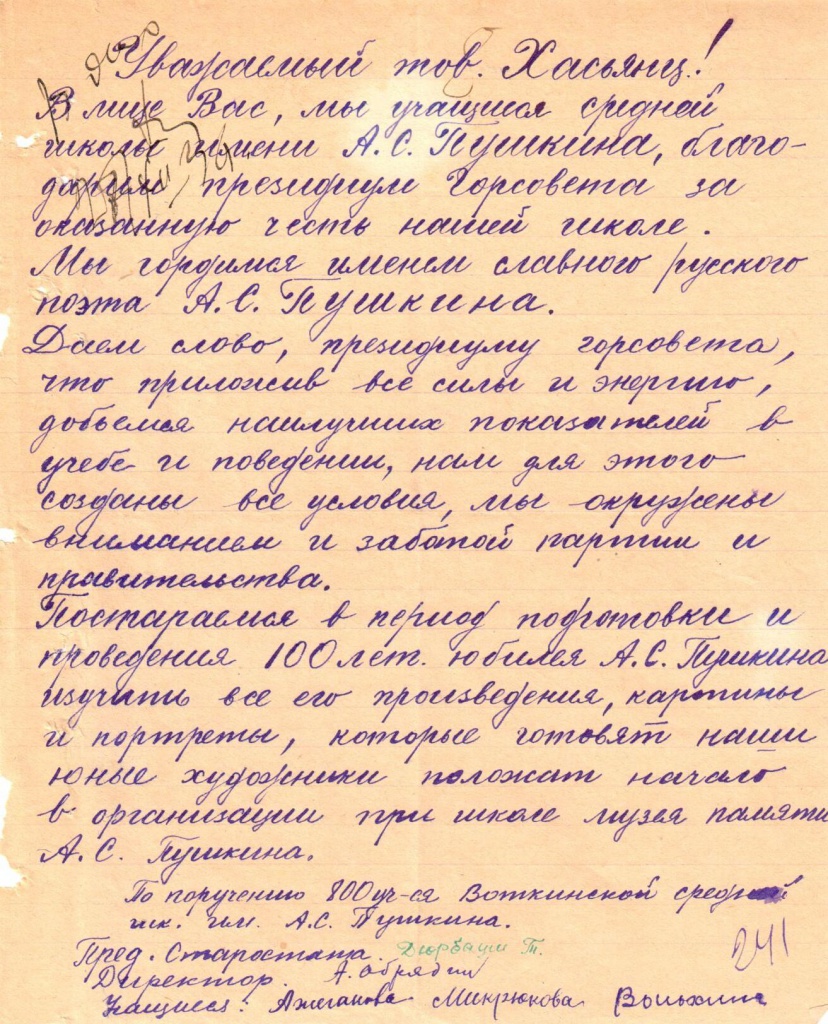 Уважаемый тов. Хасьянц!
В лице Вас, мы учащиеся средней
школы имени А.С. Пушкина, благо-
дарим президиум Горсовета за
оказанную честь нашей школе.
Мы гордимся именем славного русского
поэта А.С. Пушкина.
Даем слово, президиуму горсовета,
что приложив все силы и энергию,
добьемся наилучших показателей в
учебе и поведении, нам для этого
созданы все условия, мы окружены
вниманием и заботой партии и
правительства.
Постараемся в период подготовки и
проведения 100 лет. юбилея А.С. Пушкина
изучить все его произведения, картины
и портреты, которые готовят наши
юные художники положат начало
в организации при школе музея памяти
А.С. Пушкина.
По поручению 800 уч-ся Воткинской средней
шк. им. А.С. Пушкина.
Пред. Старостата.
Директор. А. Обрядин
Учащиеся: Ажеганова Микрюкова
241